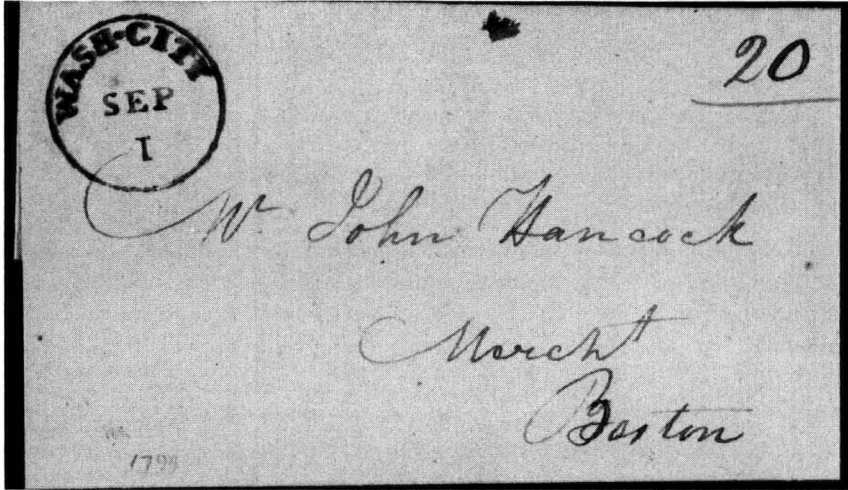 WASH·CITY
SEP
1
20
Mr John Hancock
Mercht
Boston